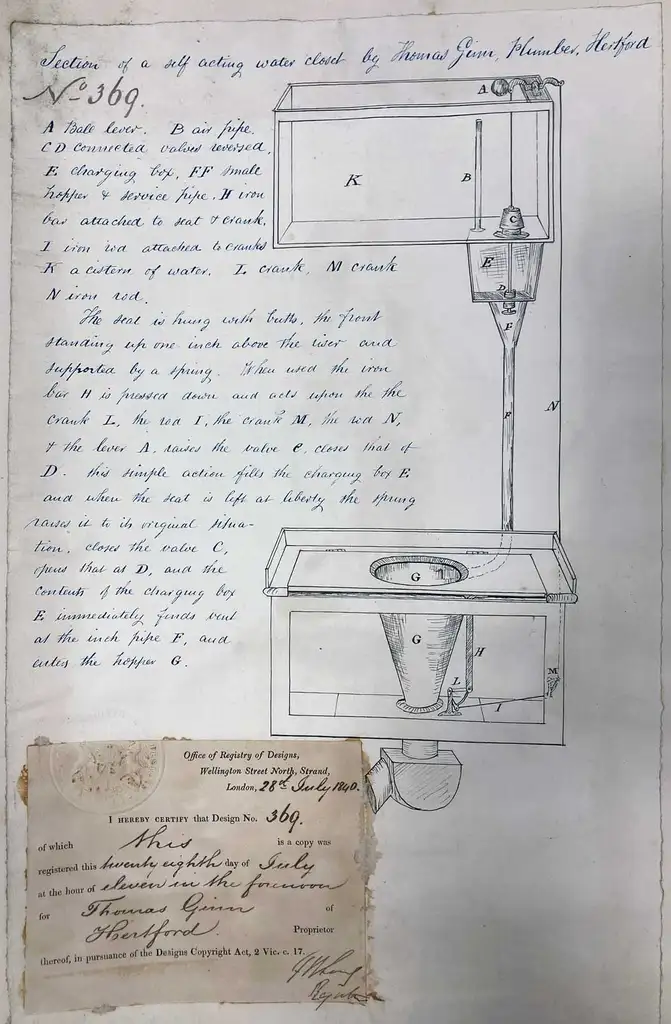 Section of a self acting water closet by Thomas Ginn, Plumber, Hertford
No 369.
A Bale lever. B air pipe.
C D connected valves reversed.
E charging box, FF small
hopper & service pipe, H iron
bar attached to seat & crank,
I iron rod attached to cranks
K a cistern of water. L crank, M crank
N iron rod.
The seat is hung with butts, the front
standing up one inch above the riser and
supported by a spring. When used the iron
bar H is pressed down and acts upon the the
crank L, the rod I, the crank M, the rod N,
& the lever A, raises the valve C, closes that of
D. this simple action fills the charging box E
and when the seat is left at liberty the spring
raises it to its original situa-
tion, closes the valve C,
opens that at D, and the
contents of the charging box
E immediately finds vent
at the inch pipe F, and
enters the hopper G.
A
B
K
C
E
D
F
F
N
G
G
H
L
M
I
Office of Registry of Designs,
Wellington Street North, Strand,
London, 28th July 1840.
I HEREBY CERTIFY that Design No. 369.
of which this is a copy was
registered this twenty eighth day of July
at the hour of eleven in the forenoon
for Thomas Ginn of
Hertford Proprietor
thereof, in pursuance of the Designs Copyright Act, 2 Vic. c. 17.